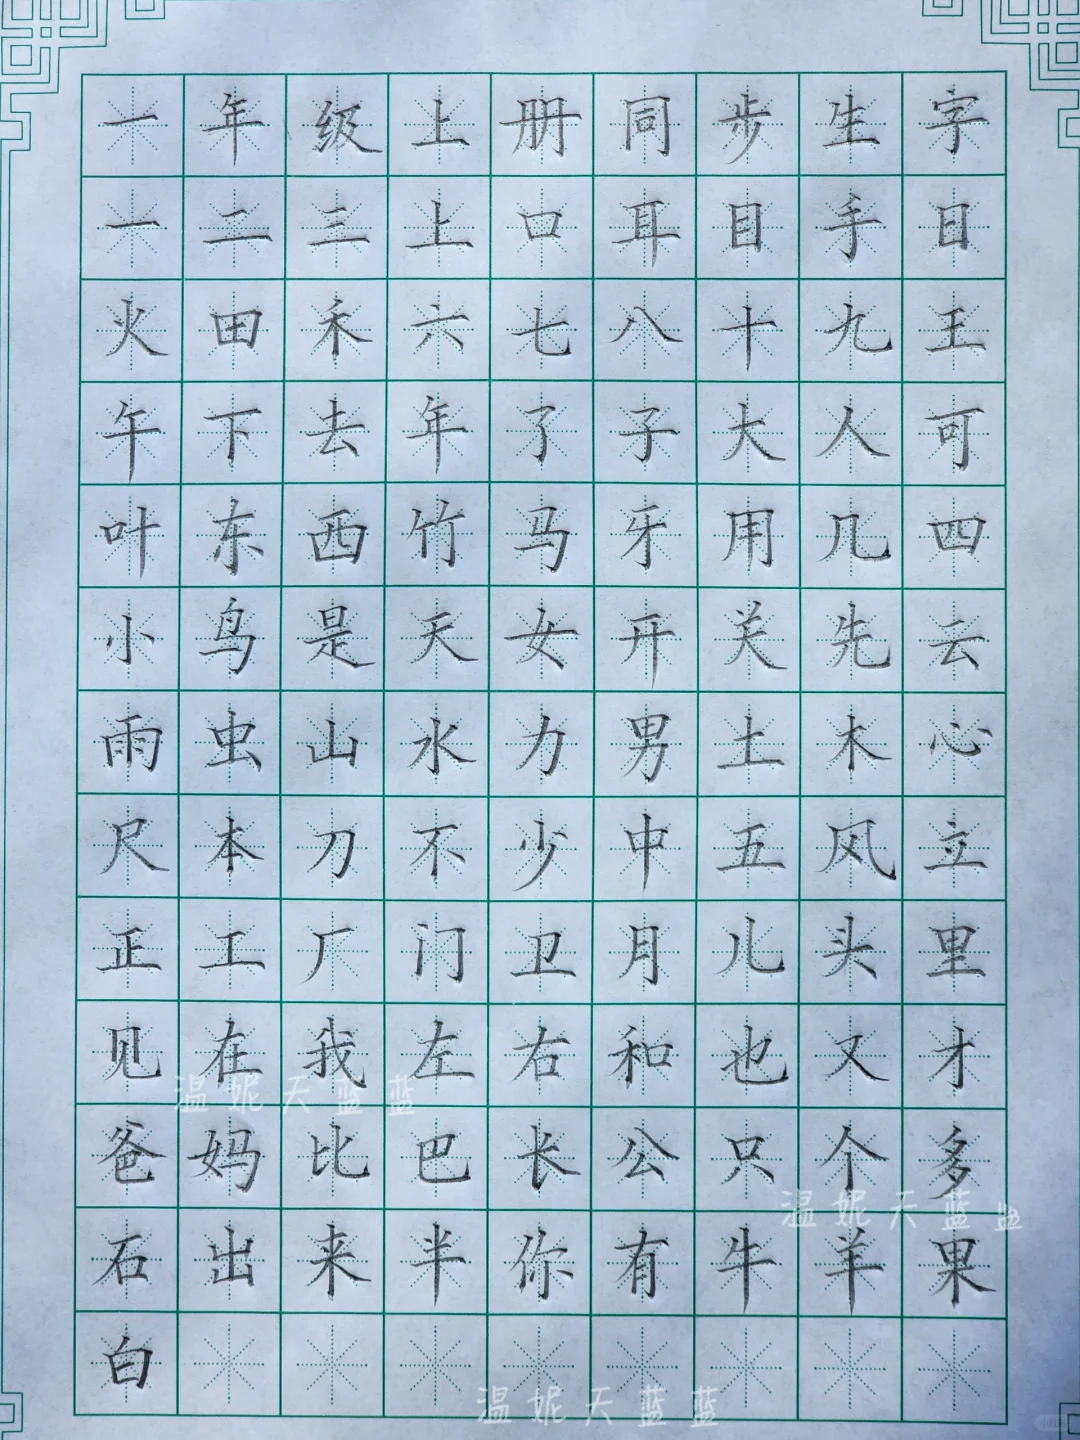 一年级上册同步生字
一二三上口耳目手日
火田禾六七八十九王
午下去年了子大人可
叶东西竹马牙用几四
小鸟是天女开关先云
雨虫山水力男土木心
尺本刀不少中五风立
正工厂门卫月儿头里
见在我左右和也又才
温妮天蓝蓝
爸妈比巴长公只个多
温妮天蓝蓝
石出来半你有牛羊果
白
温妮天蓝蓝